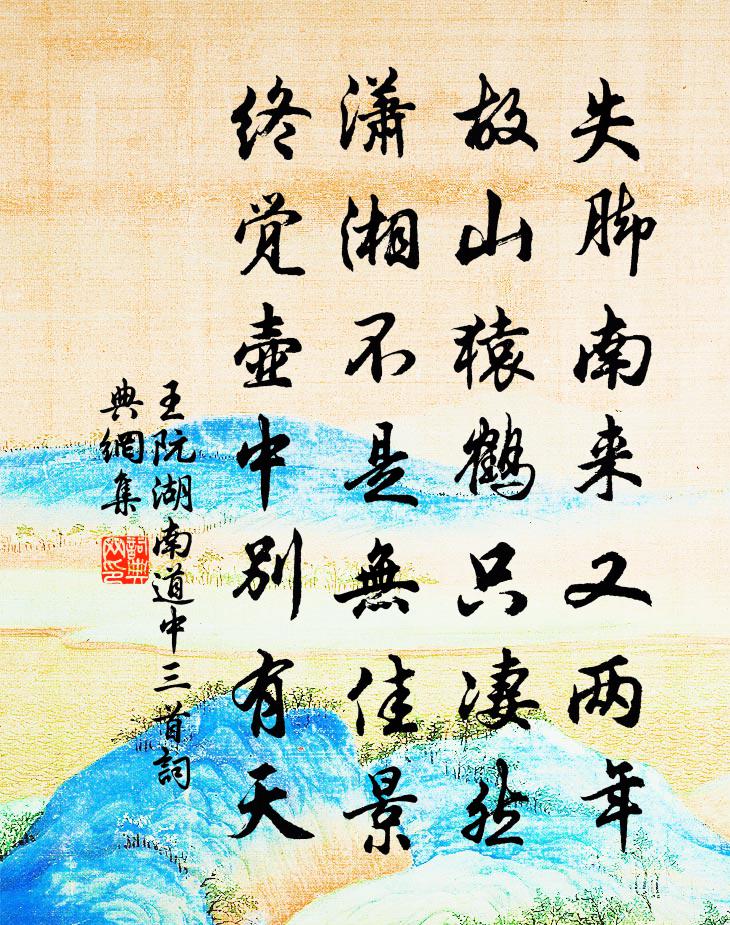 失脚南来又两年
故山猿鹤只凄然
瀟湘不是無佳景
终觉壶中别有天
王阮湖南道中三首詞
典網集
詞典
网印